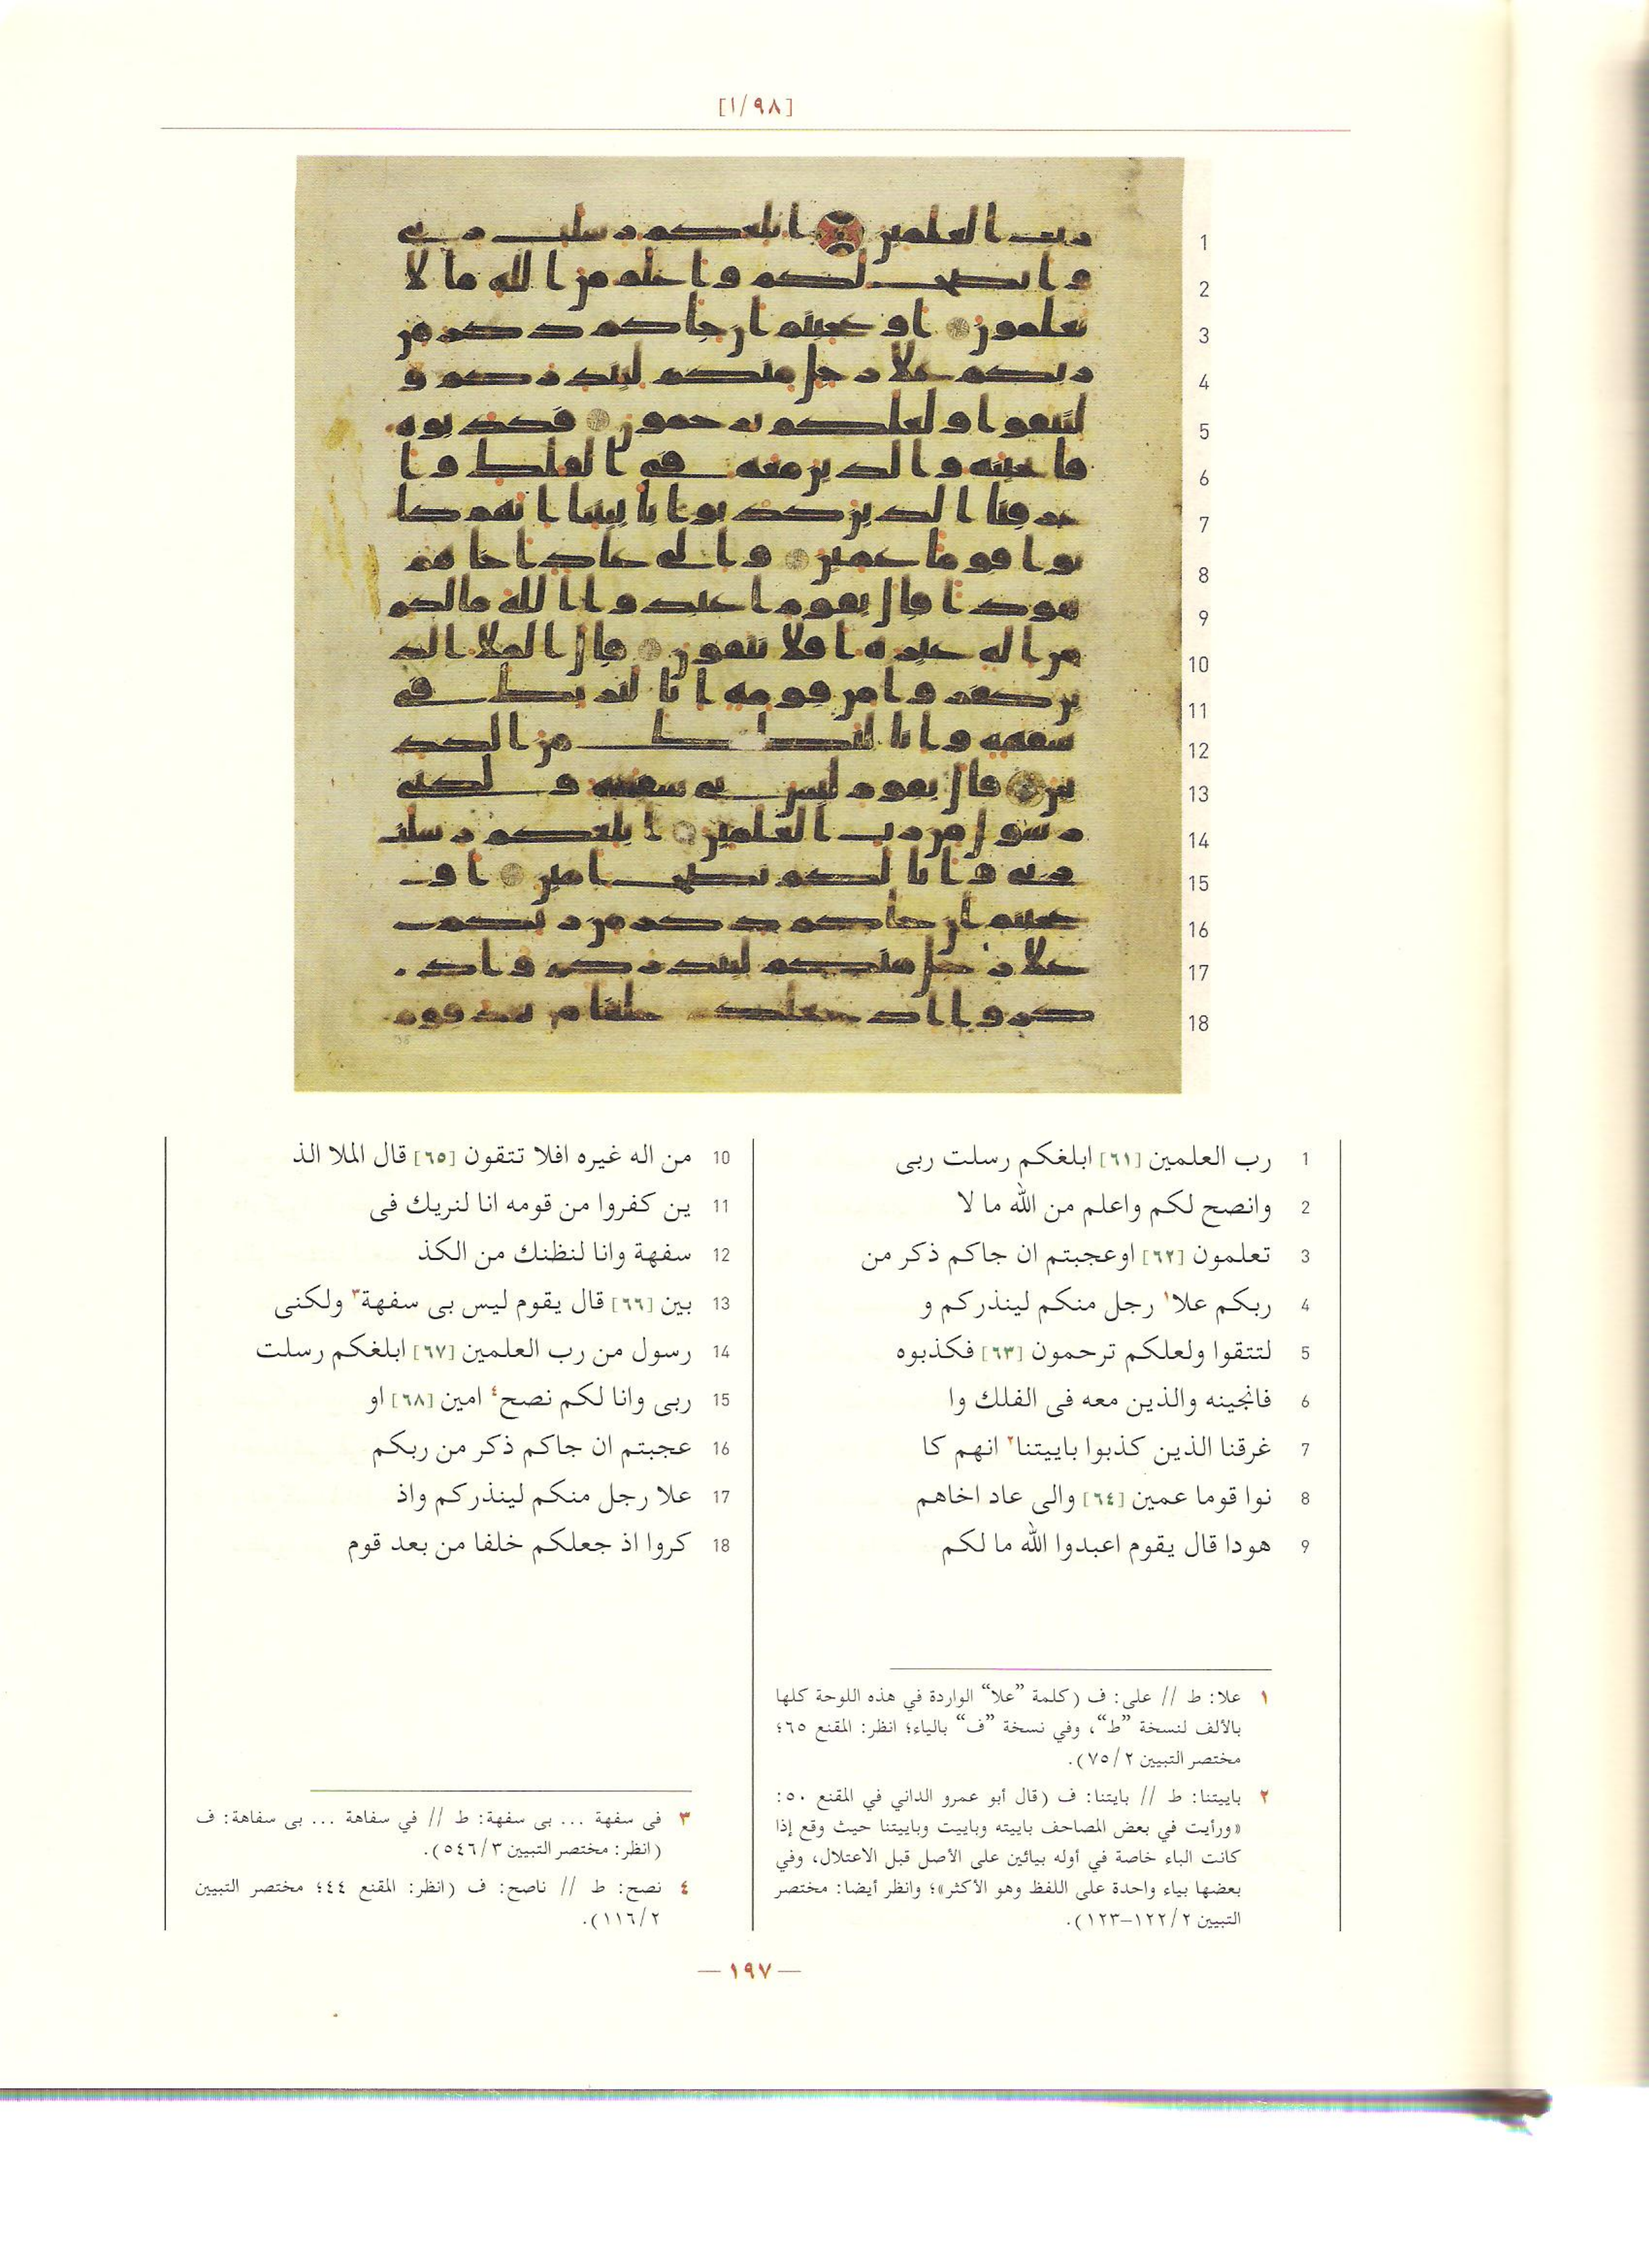 [١/٩٨]
1 رب العلمين [٦١] ابلغكم رسلت ربى
2 وانصح لكم واعلم من الله ما لا
3 تعلمون [٦٢] اوعجبتم ان جاكم ذكر من
4 ربكم علا١ رجل منكم لينذركم و
5 لتتقوا ولعلكم ترحمون [٦٣] فكذبوه
6 فانجينه والذين معه فى الفلك وا
7 غرقنا الذين كذبوا باييتنا٢ انهم كا
8 نوا قوما عمين [٦٤] والى عاد اخاهم
9 هودا قال يقوم اعبدوا الله ما لكم
10 من اله غيره افلا تتقون [٦٥] قال الملا الذ
11 ين كفروا من قومه انا لنريك فى
12 سفهة وانا لنظنك من الكذ
13 بين [٦٦] قال يقوم ليس بى سفهة٣ ولكنى
14 رسول من رب العلمين [٦٧] ابلغكم رسلت
15 ربى وانا لكم نصح٤ امين [٦٨] او
16 عجبتم ان جاكم ذكر من ربكم
17 علا رجل منكم لينذركم واذ
18 كروا اذ جعلكم خلفا من بعد قوم
١ علا: ط // على: ف (كلمة ”علا“ الواردة في هذه اللوحة كلها
بالألف لنسخة ”ط“، وفي نسخة ”ف“ بالياء؛ انظر: المقنع ٦٥؛
مختصر التبيين ٧٥/٢).
٢ باييتنا: ط // بايتنا: ف (قال أبو عمرو الداني في المقنع ٥٠:
«ورأيت في بعض المصاحف باييته وباييت وباييتنا حيث وقع إذا
كانت الباء خاصة في أوله بيائين على الأصل قبل الاعتلال، وفي
بعضها بياء واحدة على اللفظ وهو الأكثر»؛ وانظر أيضا: مختصر
التبيين ١٢٢/٢–١٢٣).
٣ فى سفهة ... بى سفهة: ط // في سفاهة ... بى سفاهة: ف
(انظر: مختصر التبيين ٥٤٦/٣).
٤ نصح: ط // ناصح: ف (انظر: المقنع ٤٤؛ مختصر التبيين
١١٦/٢).
— ١٩٧ —